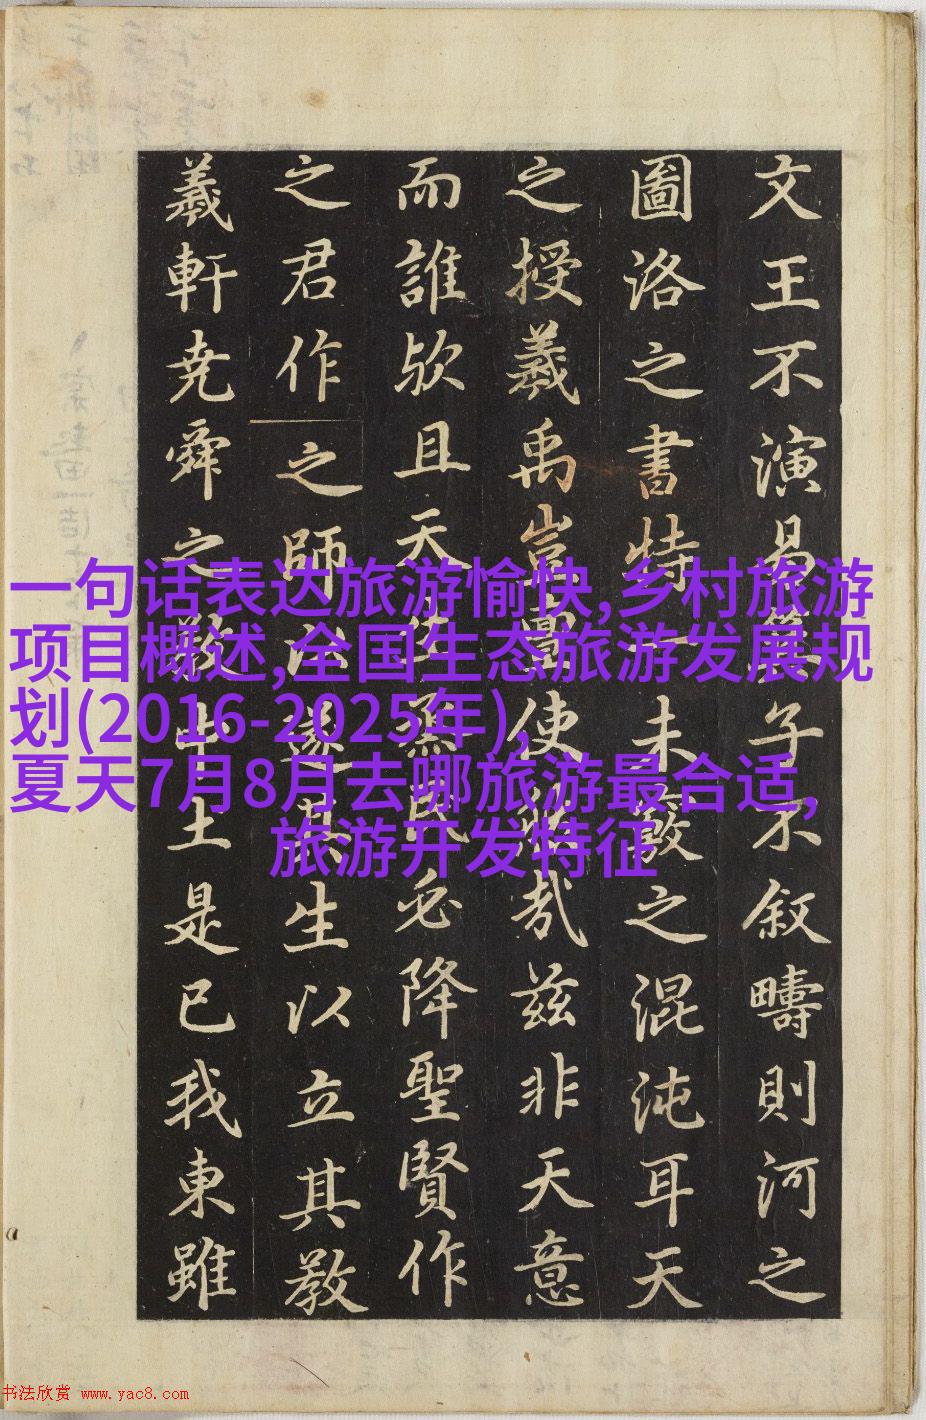 文王不演易箕子不叙疇則河之
圖洛之書特一未之混沌耳天
之授羲禹豈使哉茲非天意
而誰欤且天民必降聖賢作
之君作之師遂其生以立其教
羲軒尭舜之土是已我東雖
一句话表达旅游愉快,乡村旅游
项目概述,全国生态旅游发展规
划(2016-2025年),
夏天7月8月去哪旅游最合适,
旅游开发特征
书法欣赏 www.yac8.com